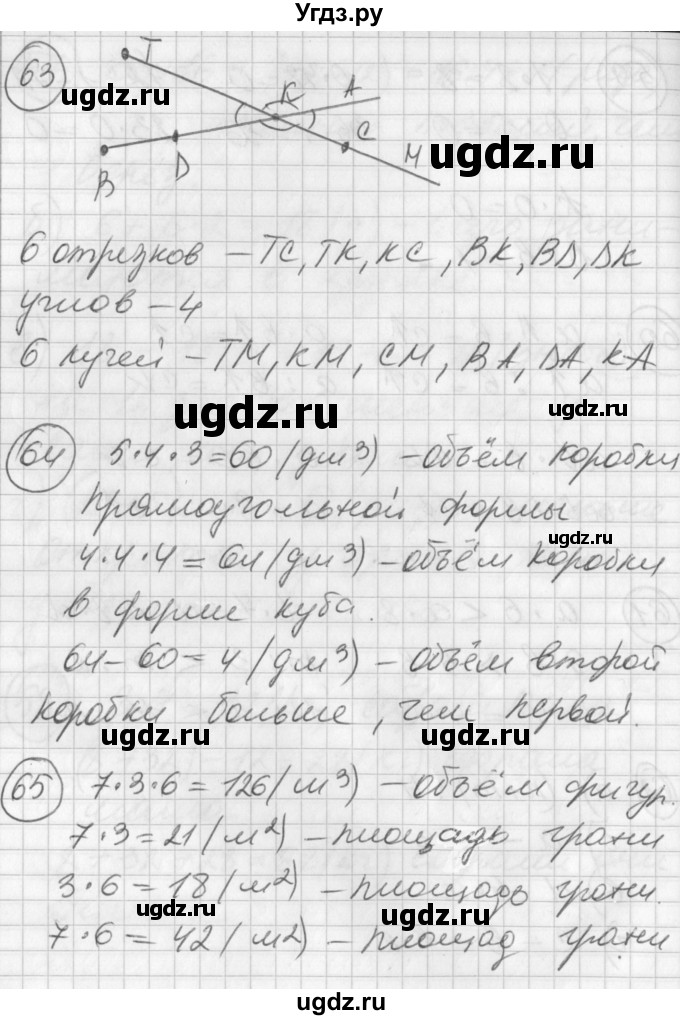 Угдз.ру
63
T
K
A
C
M
B
D
ugdz.ru
ugdz.ru
6 отрезков – TC, TK, KC, BK, BD, DK
углов – 4
6 лучей – TM, KM, CM, BA, DA, KA
ugdz.ru
ugdz.ru
64 5·4·3=60 (дм3) – объём коробки
прямоугольной формы
ugdz.ru
4·4·4=64 (дм3) – объём коробки
в форме куба.
ugdz.ru
64–60=4 (дм3) – объём второй
коробки больше, чем первой.
ugdz.ru
ugdz.ru
65 7·3·6=126 (м3) – объём фигур.
7·3=21 (м2) – площадь грани
3·6=18 (м2) – площадь грани.
ugdz.ru
ugdz.ru
7·6=42 (м2) – площад грани
ugdz.ru